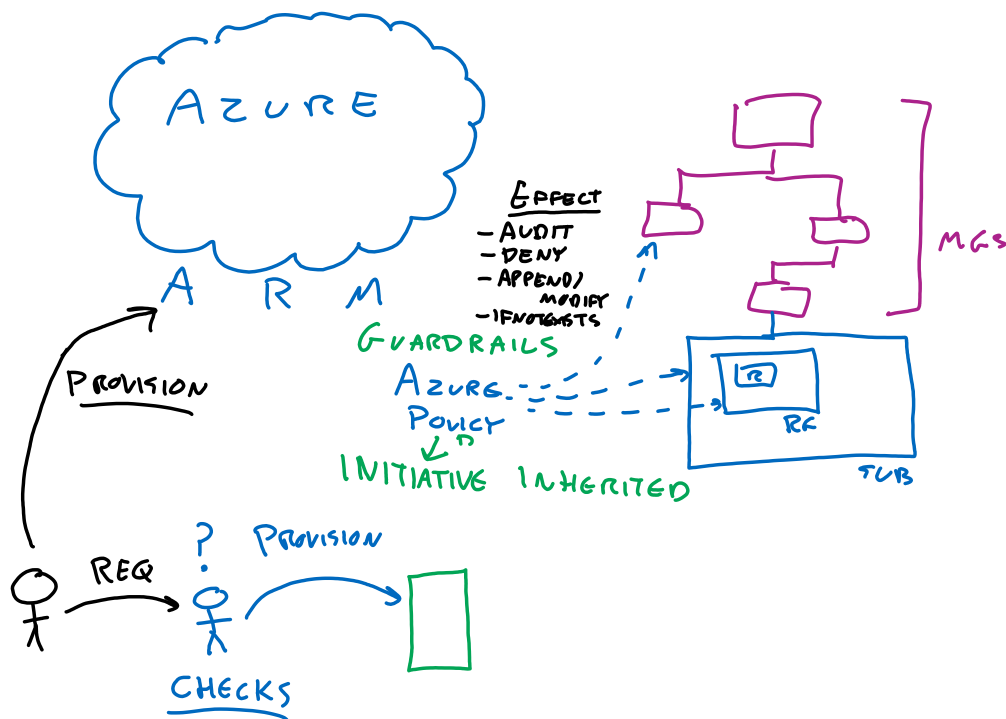 AZURE
A R M
EFFECT
- AUDIT
- DENY
- APPEND/
MODIFY
- IFNOTEXISTS
MGS
GUARDRAILS
AZURE
POLICY
n
INITIATIVE INHERITED
R
RG
SUB
PROVISION
REQ
?
PROVISION
CHECKS